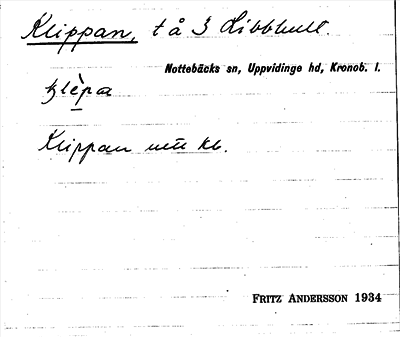 Klippan, t å 3 Libbhult.
Nottebäcks sn, Uppvidinge hd, Kronob. l.
klèpa
Klippan utt kb.
FRITZ ANDERSSON 1934